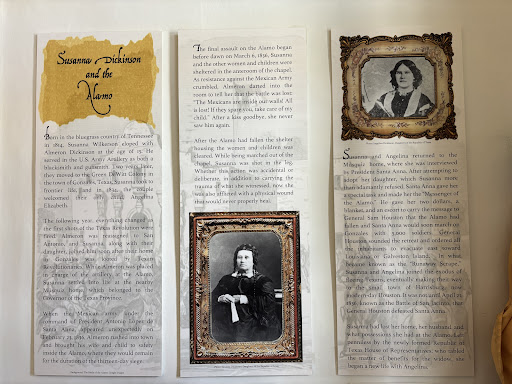 Susanna Dickinson
and the
Alamo
Born in the bluegrass country of Tennessee
in 1814, Susanna Wilkerson eloped with
Almeron Dickinson at the age of 15. He
served in the U.S. Army Artillery as both a
blacksmith and gunner. Two years later,
they moved to the Green DeWitt Colony in
the town of Gonzales, Texas. Susanna took to
frontier life, and in 1834, the couple
welcomed their daughter Angelina
Elizabeth.
The following year, everything changed as
the first shots of the Texas Revolution were
fired. Almeron was garrisoned in San
Antonio, and Susanna, along with their
daughter, joined him soon after their home
in Gonzales was looted
Revolutionaries. While Almeron was placed
in charge of the artillery at the Alamo,
Susanna settled into life at the nearby
Musquiz home, which belonged to the
Governor of the Texas Province.
When the Mexican army under the
command of President Antonio López de
Santa Anna, appeared unexpectedly on
February 23, 1836, Almeron rushed into town
and brought his wife and child to safety
inside the Alamo, where they would remain
for the duration of the thirteen-day siege.
The final assault on the Alamo began
before dawn on March 6, 1836. Susanna
and the other women and children were
sheltered in the anteroom of the chapel.
As resistance against the Mexican Army
crumbled, Almeron darted into the
room to tell her that the battle was lost:
"The Mexicans are inside our walls! All
is lost! If they spare you, take care of my
child." After a kiss goodbye, she never
saw him again.
After the Alamo had fallen the shelter
housing the women and children was
cleared. While being marched out of the
chapel, Susanna was shot in the leg.
Whether this action was accidental or
deliberate, in addition to carrying the
trauma of what she witnessed, now she
was also afflicted with a physical wound
that would never properly heal.
Susanna and Angelina returned to the
Musquiz home, where she was interviewed
by President Santa Anna. After attempting to
adopt her daughter, which Susanna more
than adamantly refused, Santa Anna gave her
expectations and made her the "Messenger of the
Alamo." He gave her two dollars, a
blanket, and an escort to carry the message to
General Sam Houston that the Alamo had
fallen and Santa Anna would soon march on
Gonzales with 5,000 soldiers. General
Houston sounded the retreat and ordered all
the inhabitants to evacuate east toward
Louisiana or Galveston Island. In what
became known as the "Runaway Scrape,"
Susanna and Angelina joined the exodus of
fleeing Texans, eventually making their way
to the small town of Harrisburg, near
modern-day Houston. It was not until April 21,
1836, known as the Battle of San Jacinto, that
General Houston defeated Santa Anna.
Susanna had lost her home, her husband, and
what possessions she had at the Alamo. Left
penniless by the newly formed Republic of
Texas House of Representatives, who tabled
the matter of benefits for the widow, she
began a new life with Angelina.